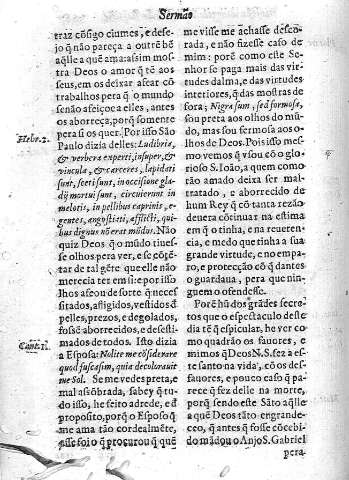 Sermão
traz cõsigo ciumes, e dese-
jo q̃ não pareça a outrẽ bẽ
aq̃lle a que ama: assim mos-
tra Deos o amor q̃ tẽ aos
seus, em os deixar afear cõ
trabalhos pera q̃ o mundo
senão afeiçoe a elles, antes
os aborreça, porq̃ somente
pera si os quer. Por isso São
Hebr. 2.
Paulo dizia delles: Ludibria,
& verbera experti, insuper, &
vincula, & carceres, lapidati
sunt, secti sunt, in occisione gla-
dij mortui sunt, circuierunt in
melotis, in pellibus caprinis, e-
gentes, angustiati, afflicti, qui-
bus dignus nõ erat mũdus. Não
quiz Deos q̃ o mũdo tives-
se olhos pera ver, e se cõtẽ-
tar de tal gẽte que elle não
merecia ter em si: e por isso
lhos afeou de sorte q̃ neces-
sitados, affligidos, vestidos d̃
pelles, prezos, e degolados,
fossẽ aborrecidos, e desesti-
mados de todos. Isto dizia
Cant. 1.
a Esposa: Nolite me cõsiderare
quod fusca sim, quia decolorauit
me Sol. Se me vedes preta, e
mal assõbrada, sabey q̃ tu-
do isso, he feito adrede, e d̃
proposito, porq̃ o Esposo q̃
me ama tão cordealmẽte,
esse foi o q̃ procurou q̃ quẽ
me visse me achasse descõ-
rada, e não fizesse caso de
mim: porẽ como este Se-
nhor se paga mais das vir-
tudes dalma, e das virtudes
interiores, q̃ das mostras de
fora; Nigra sum, sed formosa,
sou preta aos olhos do mũ-
do, mas sou fermosa aos o-
lhos de Deos. Pois isso mes-
mo vemos q̃ vsou cõ o glo-
rioso S. Ioão, a quem como
tão amado deixa ser mal-
tratado, e aborrecido de
hum Rey q̃ cõ tanta rezão
deuera cõtinuar na estima
em q̃ o tinha, e na reueren-
cia, e medo que tinha a sua
grande virtude, e no empa-
ro, e protecção cõ q̃ dantes
o guardaua, pera que nin-
guem o ofendesse.
Porẽ hũ dos grãdes secre-
tos que o espectaculo deste
dia tẽ q̃ espicular, he ver co-
mo quadrão os fauores, e
mimos q̃ Deos N. S. fez a es-
te santo na vida, cõ os des-
fauores, e pouco caso q̃ pa-
rece q̃ fez delle na morte,
porq̃ sendo este Sãto aq̃lle
a quẽ Deos tão engrande-
ceo, q̃ antes q̃ fosse cõcebi-
do mãdou o Anjo S. Gabriel
pera